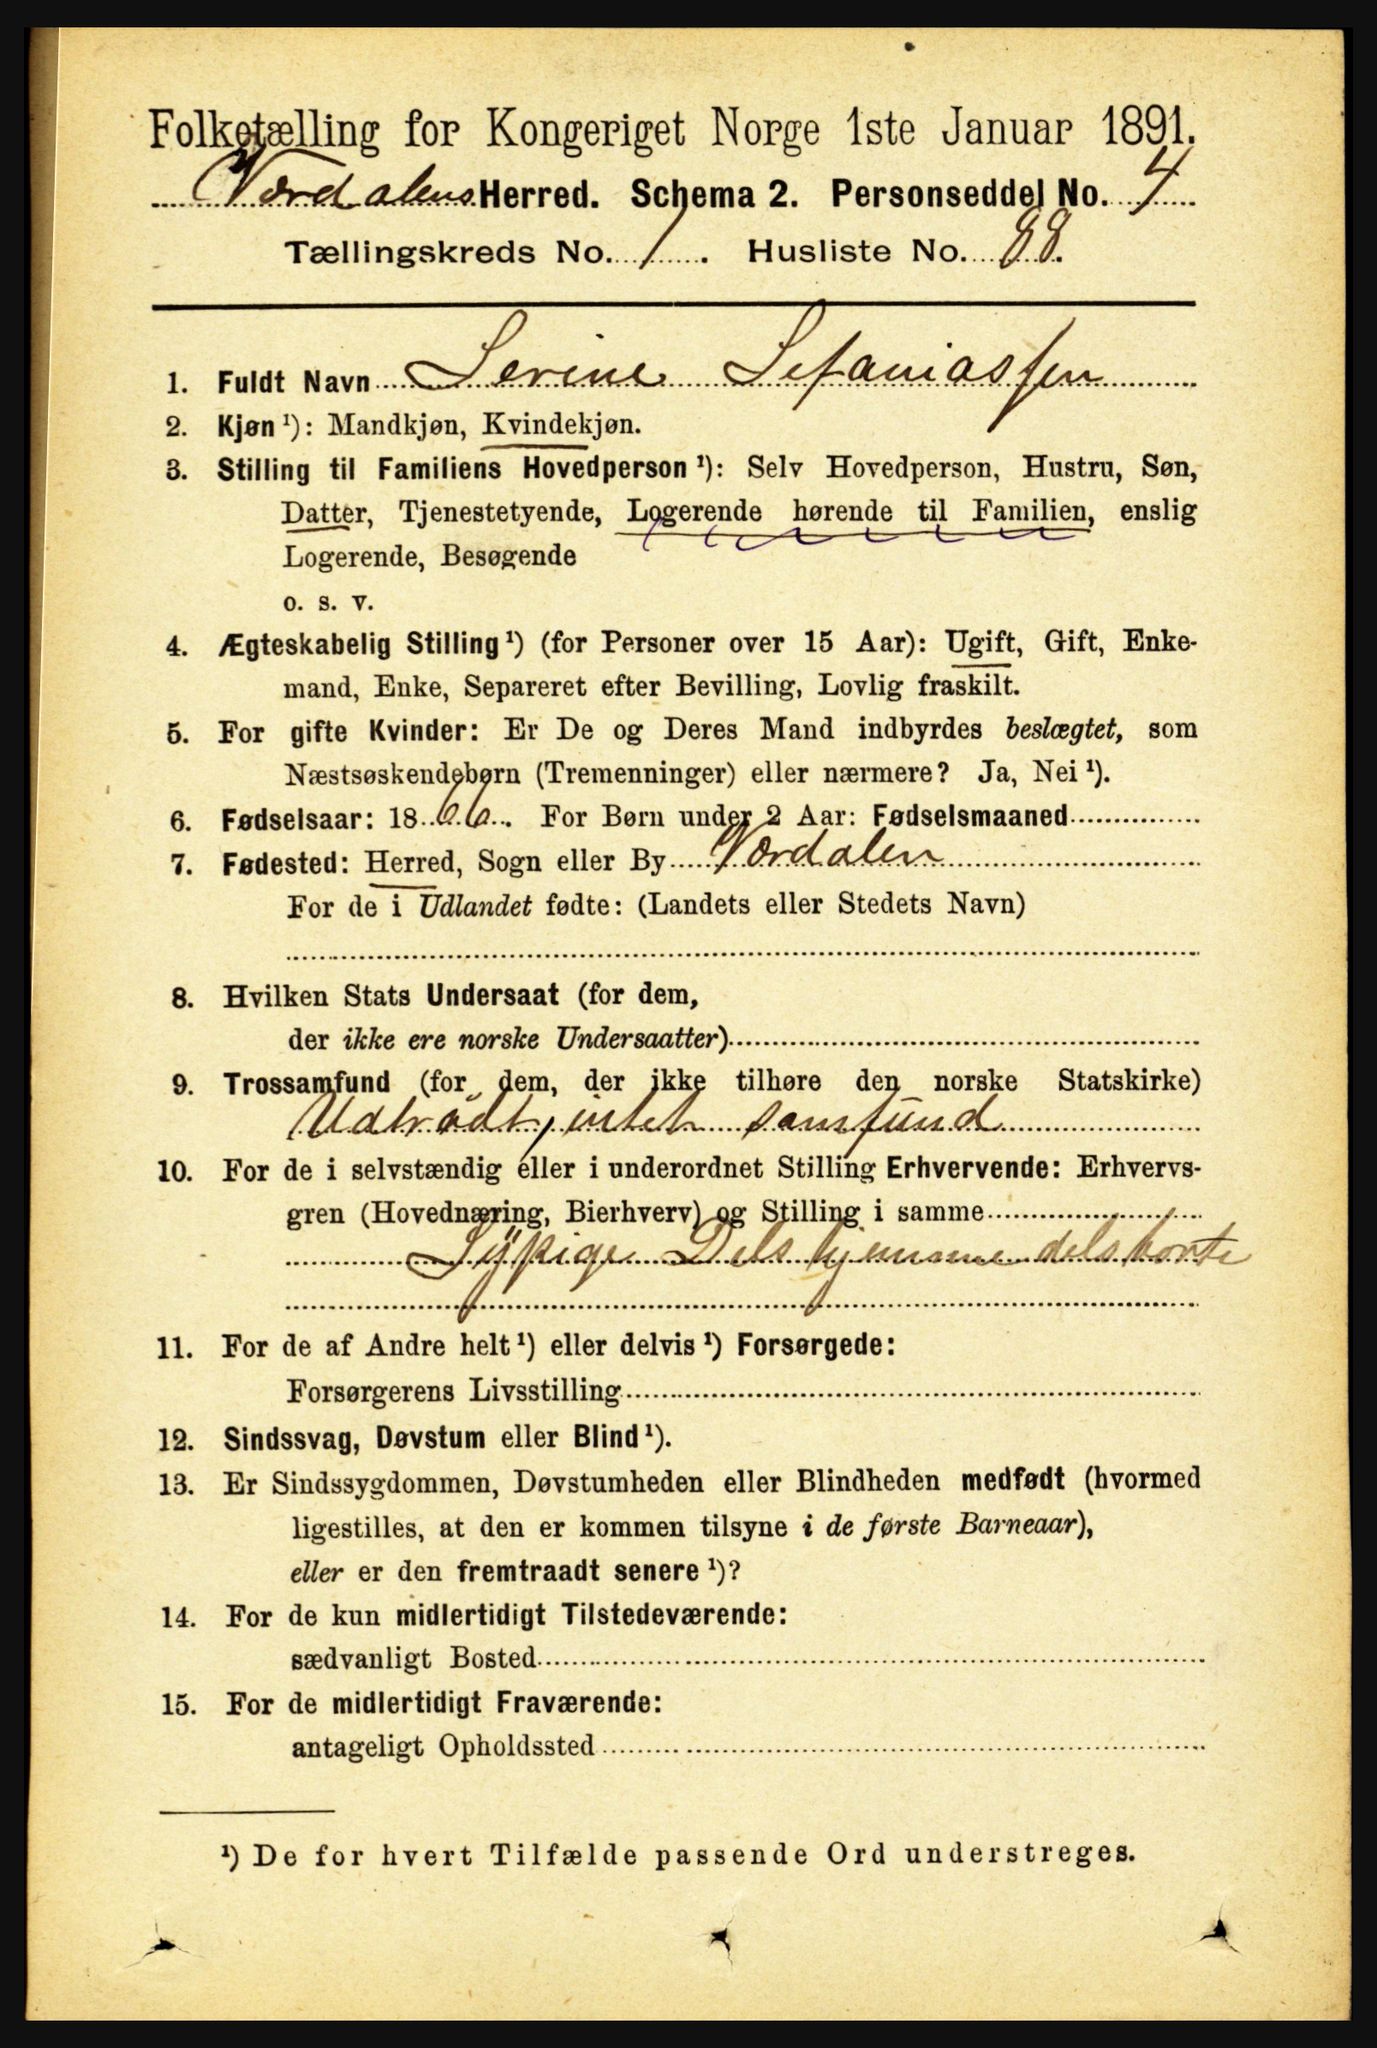 Folketælling for Kongeriget Norge 1ste Januar 1891.
Værdalens Herred. Schema 2. Personseddel No. 4
Tællingskreds No. 1. Husliste No. 88.
1. Fuldt Navn Serine Sefaniassen
2. Kjøn¹): Mandkjøn, Kvindekjøn.
3. Stilling til Familiens Hovedperson¹): Selv Hovedperson, Hustru, Søn,
Datter, Tjenestetyende, Logerende hørende til Familien, enslig
Logerende, Besøgende
o. s. v.
4. Ægteskabelig Stilling¹) (for Personer over 15 Aar): Ugift, Gift, Enke-
mand, Enke, Separeret efter Bevilling, Lovlig fraskilt.
5. For gifte Kvinder: Er De og Deres Mand indbyrdes beslægtet, som
Næstsøskendebørn (Tremenninger) eller nærmere? Ja, Nei¹).
6. Fødselsaar: 1866. For Børn under 2 Aar: Fødselsmaaned
7. Fødested: Herred, Sogn eller By Værdalen
For de i Udlandet fødte: (Landets eller Stedets Navn)
8. Hvilken Stats Undersaat (for dem,
der ikke ere norske Undersaatter)
9. Trossamfund (for dem, der ikke tilhøre den norske Statskirke)
Udtrådt, intet samfund
10. For de i selvstændig eller i underordnet Stilling Erhvervende: Erhvervs-
gren (Hovednæring, Bierhverv) og Stilling i samme
Sÿpige Dels hjemme dels borte
11. For de af Andre helt¹) eller delvis¹) Forsørgede:
Forsørgerens Livsstilling
12. Sindssvag, Døvstum eller Blind¹).
13. Er Sindssygdommen, Døvstumheden eller Blindheden medfødt (hvormed
ligestilles, at den er kommen tilsyne i de første Barneaar),
eller er den fremtraadt senere¹)?
14. For de kun midlertidigt Tilstedeværende:
sædvanligt Bosted
15. For de midlertidigt Fraværende:
antageligt Opholdssted
¹) De for hvert Tilfælde passende Ord understreges.